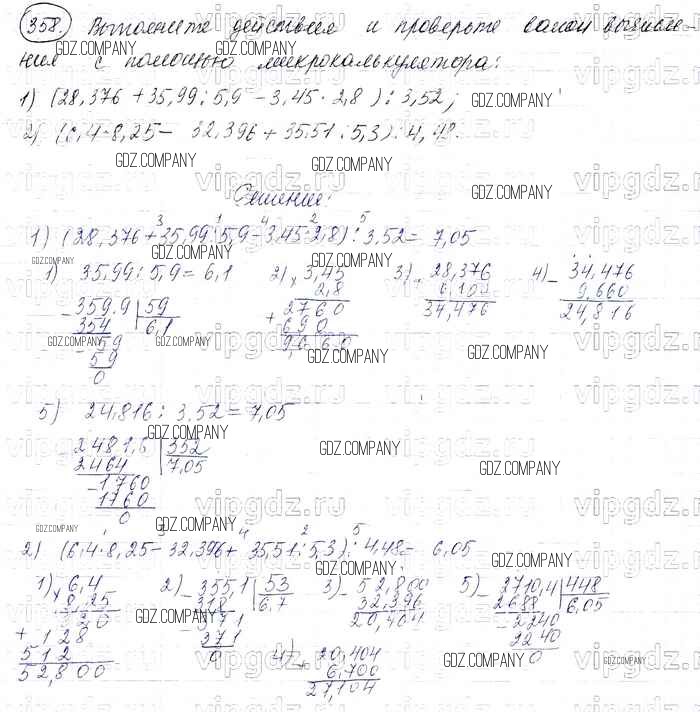 358. Выполните действия и проверьте свои вычисле-
ния с помощью микрокалькулятора:
1) (28,376 + 35,99 : 5,9 − 3,45 · 2,8) : 3,52;
2) (6,4 · 8,25 − 32,396 + 35,51 : 5,3) : 4,48.
Решение:
3 1 4 2 5
1) (28,376 + 35,99 : 5,9 − 3,45 · 2,8) : 3,52 = 7,05
1) 35,99 : 5,9 = 6,1 2) × 3,45 3) 28,376 4) − 34,476
2,8 6,100 9,660
− 359,9 | 59 2760 34,476 24,816
354 6,1 + 690
− 59 9,660
59
0
5) 24,816 : 3,52 = 7,05
− 2481,6 | 352
2464 7,05
− 1760
1760
0
1 3 4 2 5
2) (6,4 · 8,25 − 32,396 + 35,51 : 5,3) : 4,48 = 6,05
1) × 6,4 2) − 355,1 | 53 3) − 52,800 5) − 2710,4 | 448
8,25 318 6,7 32,396 2688 6,05
320 − 371 20,404 − 2240
+ 128 371 2240
512 0 4) + 20,404 0
52,800 6,700
27,104
GDZ.COMPANY
vipgdz.ru